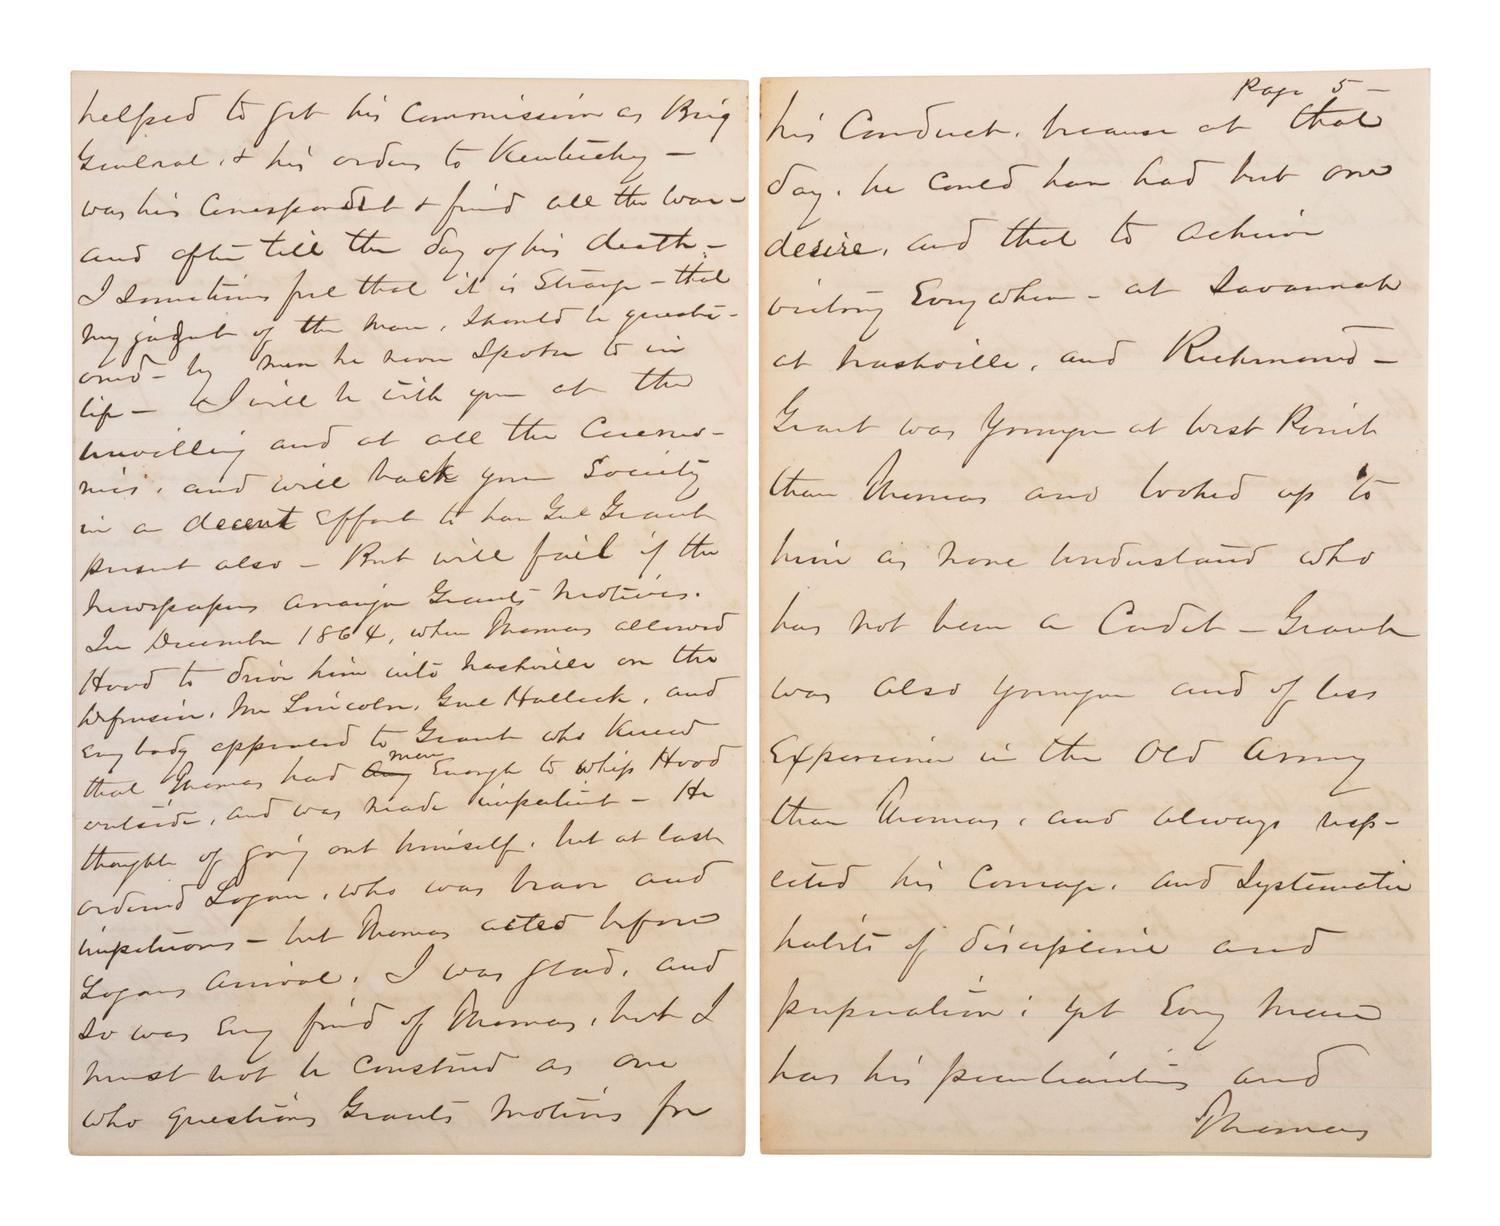 helped to get his Commission as Brig
General, & his orders to Kentucky -
was his Correspondent & friend all the war -
and after till the day of his death -
I sometimes feel that it is Strange - that
my judgmt of the man, should be questi-
oned - by men he never Spoke to in
life - I will be with you at the
unveiling and at all the Ceremo-
nies, and will back your Society
in a decent effort to have Genl Grant
present also - But will fail if the
Newspapers arraign Grants Motives.
In December 1864, when Thomas allowed
Hood to drive him into Nashville on the
defensive, Mr Lincoln, Genl Halleck, and
Every body appealed to Grant who Knew
that Thomas had any men Enough to whip Hood
outside, and was made impatient - He
thought of going out himself, but at last
ordered Logan, who was brave and
impetuous - but Thomas acted before
Logans arrival. I was glad, and
so was Every friend of Thomas, but I
must not be construed as one
who questions Grants Motives for
Page 5 -
his Conduct, because at that
day, he could have had but one
desire, and that to achieve
victory Everywhere - at Savannah
at Nashville, and Richmond -
Grant was Younger at West Point
than Thomas and looked up to
him as none Understand who
has not been a Cadet - Grant
was also younger and of less
Experience in the Old Army
than Thomas, and always resp-
ected his Courage, and Systematic
habits of discipline and
preparation; yet Every man
has his peculiarities and
Thomas